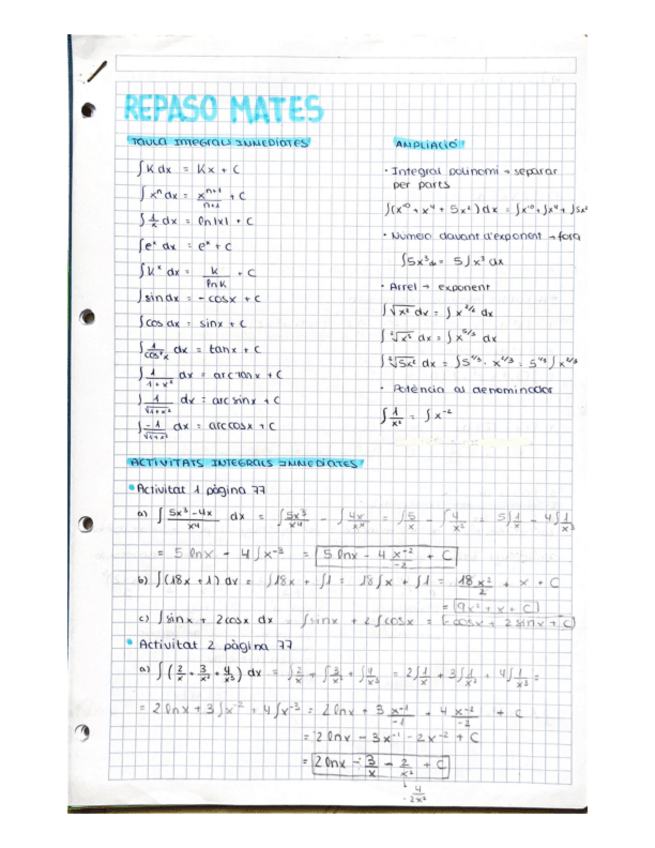 REPASO MATES
TAULA INTEGRALS INMEDIATES
∫K dx = Kx + C
∫xⁿ dx = xⁿ⁺¹/n+1 + C
∫1/x dx = ln|x| + C
∫eˣ dx = eˣ + C
∫kˣ dx = k/lnK + C
∫sin dx = -cosx + C
∫cos dx = sinx + C
∫1/cos²x dx = tanx + C
∫1/1+x² dx = arctanx + C
∫1/√1+x² dx = arc sinx + C
∫-1/√1+x² dx = arccosx + C
AMPLIACIÓ
· Integral polinomi → separar
per parts
∫(x¹⁰ + x⁴ + 5x²) dx = ∫x¹⁰ + ∫x⁴ + ∫5x²
· Número davant d'exponent → fora
∫5x³ dx = 5∫x³ dx
· Arrel → exponent
· Potència al denominador
∫1/x² = ∫x⁻²
ACTIVITATS INTEGRALS INMEDIATES
• Activitat 1 pàgina 77
a) ∫5x³-4x/x⁴ dx = ∫5x³/x⁴ - ∫4x/x⁴ = ∫5/x - ∫4/x³ = 5∫1/x - 4∫1/x³
= 5 lnx - 4∫x⁻³ = 5 lnx - 4 x⁻²/-2 + C
b) ∫(18x + 1) dx = ∫18x + ∫1 = 18∫x + ∫1 = 18 x²/2 + x + C
= 9x² + x + C
c) ∫sinx + 2cosx dx = ∫sinx + 2∫cosx = -cosx + 2 sinx + C
• Activitat 2 pàgina 77
a) ∫(2/x + 3/x² + 4/x³) dx = ∫2/x + ∫3/x² + ∫4/x³ = 2∫1/x + 3∫1/x² + 4∫1/x³ =
= 2 lnx + 3∫x⁻² + 4∫x⁻³ = 2 lnx + 3 x⁻¹/-1 + 4 x⁻²/-2 + C
= 2 lnx - 3x⁻¹ - 2x⁻² + C
= 2 lnx - 3/x - 2/x² + C
- 4/2x²